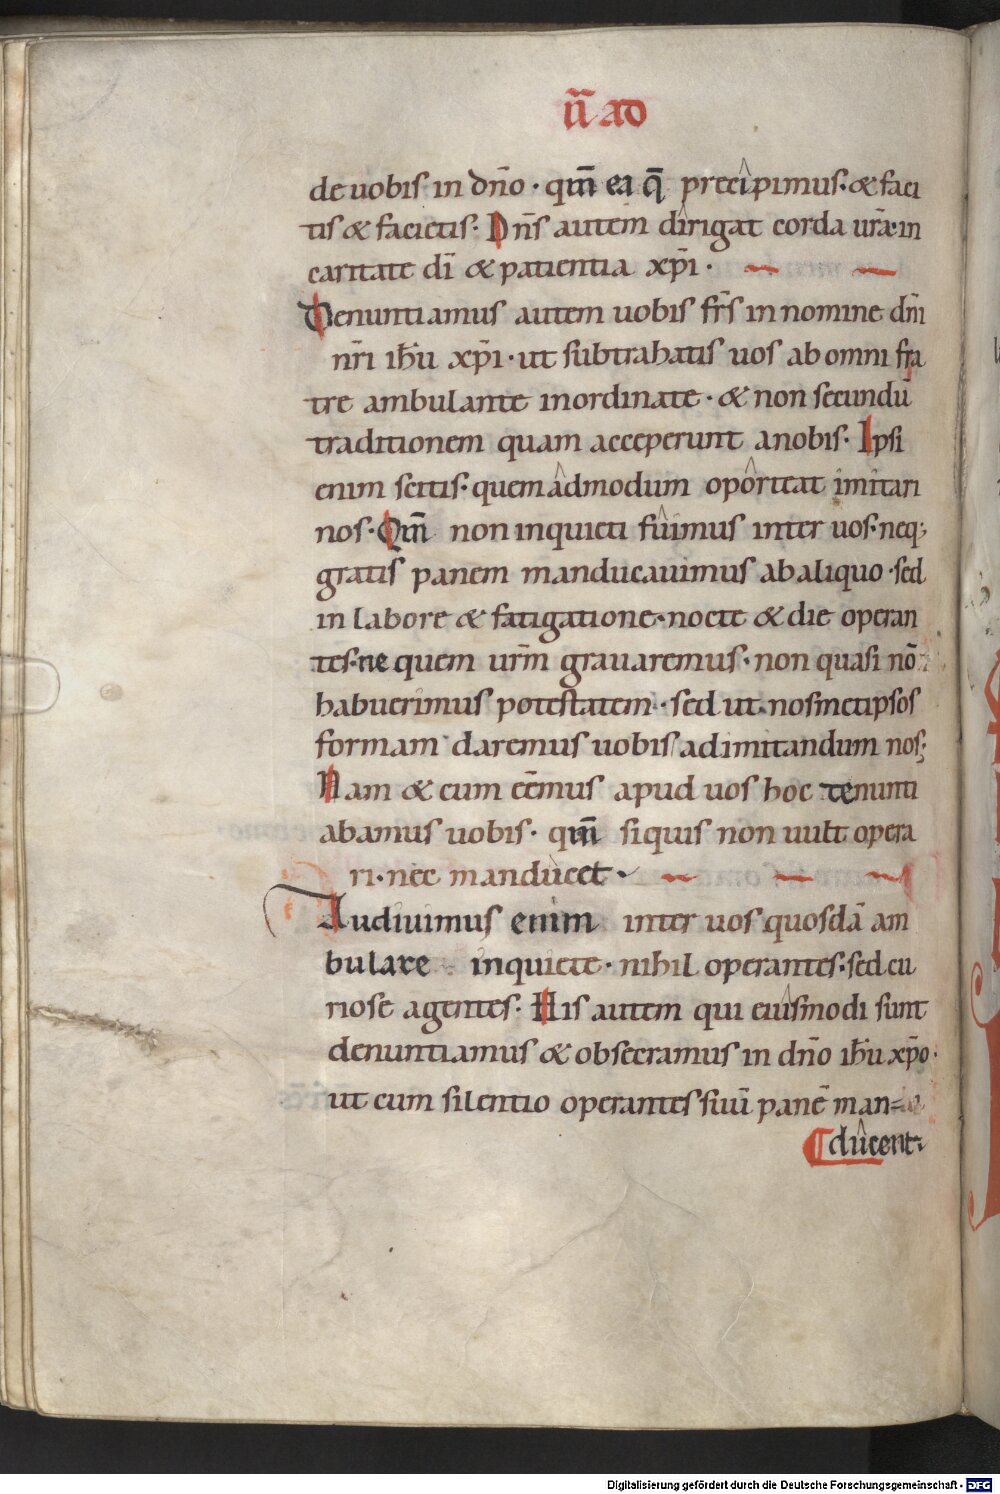 ii ad
de uobis in dn̄o · qm̄ ea q̄ precipimus · & faci
tis & facietis · Dn̄s autem dirigat corda ur̄a · in
caritate dī & patientia xp̄i ·
Denuntiamus autem uobis fr̄s in nomine dn̄i
nr̄i ih̄u xp̄i · ut subtrahatis uos ab omni fra
tre ambulante inordinate · & non secundū
traditionem quam acceperunt anobis · Ipsi
enim scitis · quemadmodum oporteat imitari
nos · Qm̄ non inquieti fuimus inter uos · neq;
gratis panem manducauimus ab aliquo · sed
in labore & fatigatione · nocte & die operan
tes · ne quem ur̄m grauaremus · non quasi nō
habuerimus potestatem · sed ut nosmetipsos
formam daremus uobis ad imitandum nos;
Nam & cum eēmus apud uos hoc denunti
abamus uobis · qm̄ siquis non uult opera
ri · nec manducet ·
Audiuimus enim inter uos quosdā am
bulare inquiete · nihil operantes · sed cu
riose agentes · His autem qui eiusmodi sunt
denuntiamus & obsecramus in dn̄o ih̄u xp̄o ·
ut cum silentio operantes suū panē man=
ducent ·
Digitalisierung gefördert durch die Deutsche Forschungsgemeinschaft - DFG